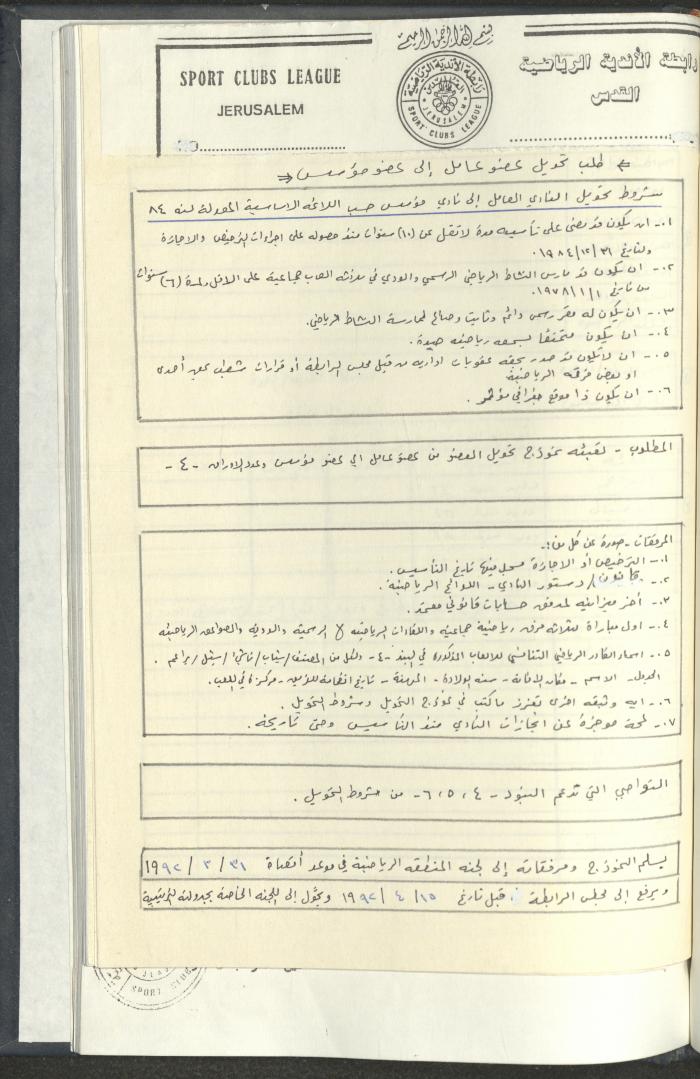 بسم الله الرحمن الرحيم
SPORT CLUBS LEAGUE
JERUSALEM
رابطة الأندية الرياضية
القدس
رابطة الأندية الرياضية
القدس
JERUSALEM
SPORT CLUBS LEAGUE
طلب تحويل عضو عامل إلى عضو مؤسس
شروط تحويل النادي العامل إلى نادي مؤسس حسب اللائحة الاساسية المعدلة لسنة ٨٤
١.- ان يكون قد مضى على تأسيسه مدة لا تقل عن (١٠) سنوات منذ حصوله على اجراءات الترخيص والاجازة
ولتاريخ ٣١/١٢/١٩٨٤.
٢.- ان يكون قد مارس النشاط الرياضي الرسمي والودي في ثلاثة العاب جماعية على الاقل ولمدة (٦) سنوات
من تاريخ ١/١/١٩٧٨.
٣.- ان يكون له مقر رسمي دائم وثابت وصالح لممارسة النشاط الرياضي.
٤.- ان يكون متمتعًا بسمعه رياضيه جيدة.
٥.- ان لا تكون قد صدر بحقه عقوبات ادارية من قبل مجلس الرابطة أو قرارات شطب بحق أحدى
او بعض فرقه الرياضية
٦.- ان يكون ذا موقع جغرافي مؤثر.
المطلوب - تعبئه نموذج تحويل العضو من عضو عامل الى عضو مؤسس وعدد الاوراق - ٤ -
المرفقات - صورة عن كل من:-
١.- الترخيص أو الاجازة مسجل فيها تاريخ التأسيس.
٢.- قانون / دستور النادي - اللوائح الرياضية.
٣.- أخر ميزانيه لمدقق حسابات قانوني معتمد.
٤.- اول مباراة لثلاثه فرق رياضية جماعية واللقاءات الرياضيه الرسمية والودية
٥.- اسماء الكادر الرياضي التنافسي للالعاب المذكورة في البند - ٤ - ولكل من المصنف/شباب/ناشئ/شبل/براعم.
الجدول - الاسم - مكان الاقامة - سنه الولادة - المهنة - تاريخ انضمامه - مركزه في اللعب.
٦.- ايه وثيقه اخرى تعزز ما كتب في نموذج التحويل وشروط التحويل.
٧.- لمحة موجزة عن انجازات النادي منذ التأسيس وحتى تاريخه.
النواحي التي تدعم البنود - ٤، ٥، ٦ - من شروط التحويل.
يسلم النموذج ومرفقاته إلى لجنه المنطقه الرياضية في موعد أقصاه ٣١ / ٣ / ١٩٩٢
ويرفع إلى مجلس الرابطة قبل تاريخ ١٥ / ٤ / ١٩٩٢ ويحول إلى اللجنه الخاصة